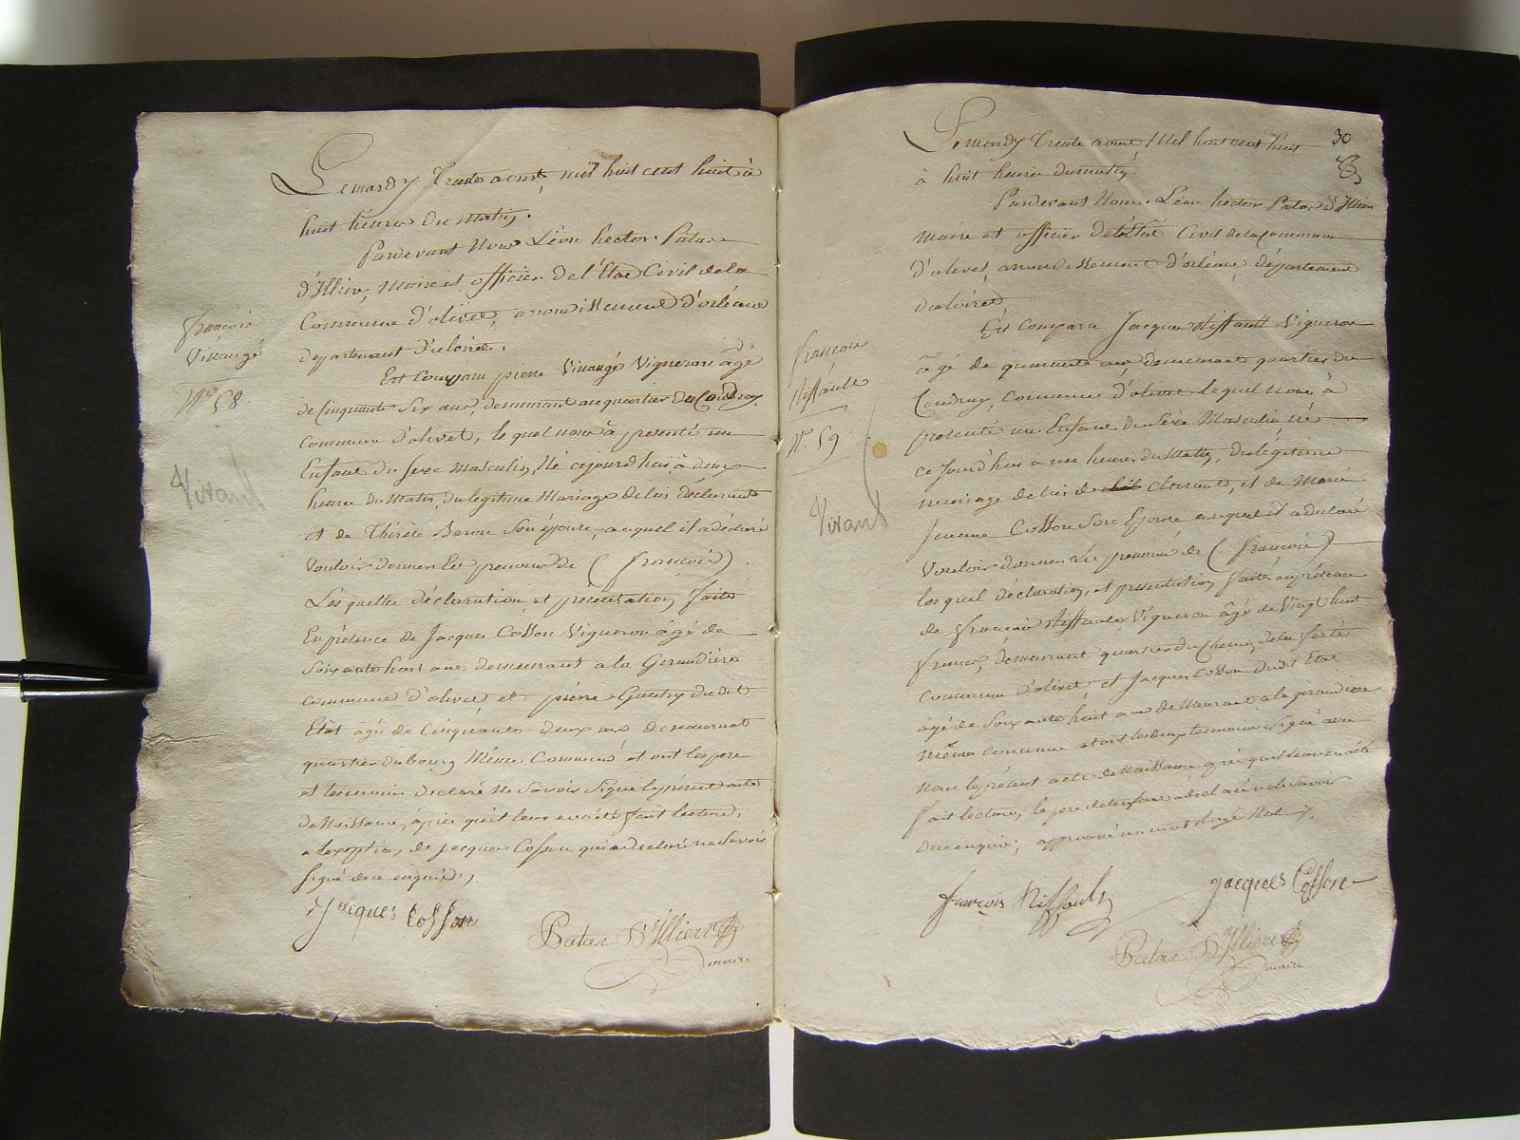 Le mardy Trente aout, mil huit cent huit à
huit heures du matin.
Pardevant Nous Léon hector Patas
d'Illiers, maire et officier de l'Etat Civil de la
Commune d'olivet, arrondissement d'orléans
département du loiret.
Est Comparu pierre Virangé Vigneron âgé
de Cinquante Six ans, demeurant au quartier du Coudray,
commune d'olivet, le quel nous à presenté un
Enfant du sexe masculin, Né cejourd'hui à deux
heures du Matin, du legitime Mariage de lui déclarant
et de Thérèse Son épouse, auquel il a déclaré
Vouloir donner les prenoms de (françois).
Les quelles déclaration et présentation faites
En présence de Jacques Cosson Vigneron âgé de
Soixante huit ans demeurant a la Giraudière
commune d'olivet et pierre Gautry dudit
Etat âgé de Cinquante deux ans demeurant
quartier du bourg Même Commune et ont les père
et temoins déclaré Ne Savoir Signé le présent acte
de Naissance, après qu'il leur en a été fait lecture,
a lexception, de jacques Cosson qui a declaré Savoir
signé de ce enquis,
Jacques cosson
Patas D'Illiers
maire
françois
Virangé
N° 58
Vivant
30
Le mardy Trente aout Mil huit cent huit
à huit heures du matin
Pardevant Nous Léon hector Patas d'Illiers
Maire et officier de l'état Civil de la commune
d'olivet, arrondissement d'orléans, département
du loiret
Est comparu Jacques Niffault Vigneron
âgé de quarante ans, demeurant quartier du
Coudray, commune d'olivet lequel nous à
présenté un Enfant du Sexe Masculin né
ce jourd'hui a une heure du Matin, du légitime
mariage de lui de clarant, et de Marie
jeanne Cosson Son Epouse auquel il a déclaré
Vouloir donner les prenoms de (françois)
les quels déclaration, et présentation faite en présence
de françois Niffault Vigneron âgé de Vingt huit
demeurant quartier du de la ferté
commune d'olivet, et Jacques Cosson dudit Etat
âgé de Soixante huit ans demeurant a la giraudiere
même commune et ont les deux temoins signé avec
nous le présent acte de Naissance après qu'il leur en a été
fait lecture, le père de lenfant a declaré ne le savoir
de ce enquis, approuvé un mot rayé Nul
françois Niffault
Jacques Cosson
Patas D'Illiers
maire
françois
Niffault
N°. 59
Vivant